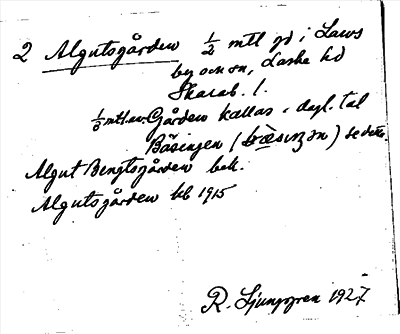 2 Algutsgården 1/2 mtl gd i Laws
by och sn, Laske hd
Skarab. l.
1/8 mtl. av Gården kallas i dagl. tal
Båsingen (                ) se detta.
Algut Bengtsgården bek.
Algutsgården kb 1915
R. Ljunggren 1927